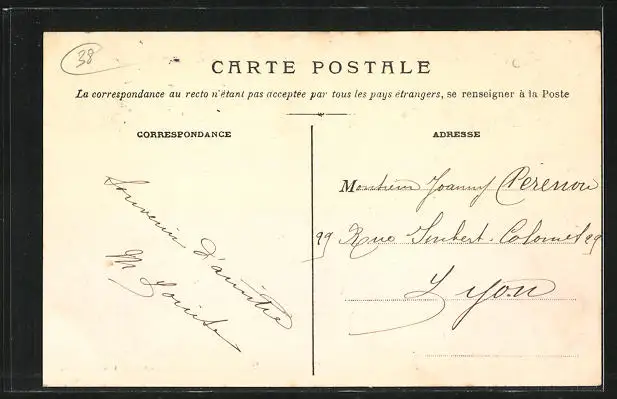 38
CARTE POSTALE
La correspondance au recto n'étant pas acceptée par tous les pays étrangers, se renseigner à la Poste
CORRESPONDANCE
Souvenir D'amitié
M
ADRESSE
Monsieur Joanny Pérenon
29 Rue Imbert-Colomès 29
Lyon